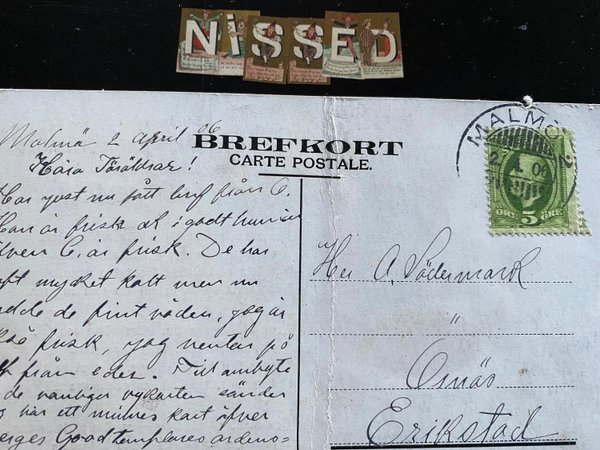 NiSSED
Malmö 2 april 06
BREFKORT
CARTE POSTALE.
MALMÖ 2
06
5
ÖRE 5 ÖRE
Kära Föräldrar!
Har just nu fått bref från C.
Han är frisk at i godt humör
även C. är frisk. De har
haft mycket kalt men nu
hadde de fint väder, jag är
frisk, jag väntar på
från eder. Till ombyte
de vanliga vykorten sänder
jag här ett minnes kort öfver
Sveriges Goodtemplares ordens=
Her A. Södermark
"
Omås
Erikstad